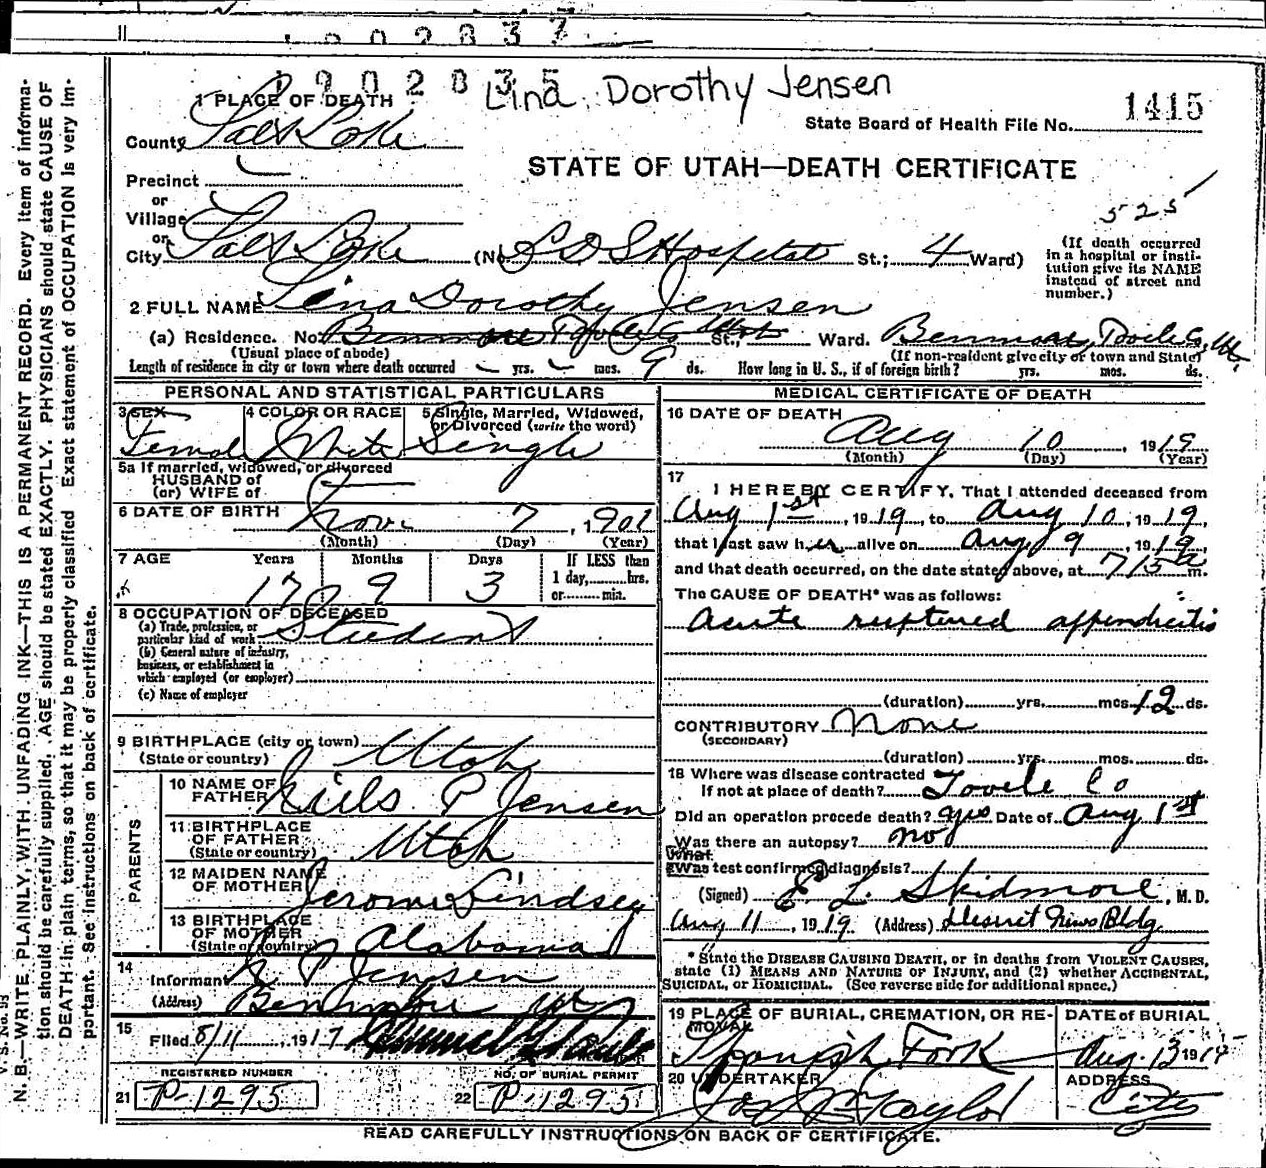 1902837
1902835
Lina Dorothy Jensen
1 PLACE OF DEATH
State Board of Health File No. 1415
County Salt Lake
STATE OF UTAH—DEATH CERTIFICATE
Precinct
or
Village
525
or
City Salt Lake (No. L D S Hospital St.; 4 Ward)
(If death occurred in a hospital or insti-
tution give its NAME
instead of street and
number.)
2 FULL NAME Lina Dorothy Jensen
(a) Residence. No. Benmore Tooele Co Utah St., Ward. Benmore, Tooele Co, Ut,
(Usual place of abode) (If non-resident give city or town and State)
Length of residence in city or town where death occurred yrs. mos. 9 ds. How long in U. S., if of foreign birth? yrs. mos. ds.
PERSONAL AND STATISTICAL PARTICULARS
3 SEX 4 COLOR OR RACE 5 Single, Married, Widowed,
or Divorced (write the word)
Female White Single
5a If married, widowed, or divorced
HUSBAND of
(or) WIFE of
6 DATE OF BIRTH Nov. 7, 1901
(Month) (Day) (Year)
7 AGE Years Months Days If LESS than
1 day,......hrs.
or......min.
17 9 3
8 OCCUPATION OF DECEASED
(a) Trade, profession, or
particular kind of work Student
(b) General nature of industry,
business, or establishment in
which employed (or employer)
(c) Name of employer
9 BIRTHPLACE (city or town)
(State or country) Utah
PARENTS
10 NAME OF
FATHER Niels P Jensen
11 BIRTHPLACE
OF FATHER
(State or country) Utah
12 MAIDEN NAME
OF MOTHER Jerome Lindsey
13 BIRTHPLACE
OF MOTHER
(State or country) Alabama
14
Informant N. P Jensen
(Address) Benmore Ut
15
Filed 8/11, 1917
REGISTERED NUMBER NO. OF BURIAL PERMIT
21 P-1295 22 P-1295
MEDICAL CERTIFICATE OF DEATH
16 DATE OF DEATH
Aug 10, 1919
(Month) (Day) (Year)
17
I HEREBY CERTIFY, That I attended deceased from
Aug 1st, 1919, to Aug 10, 1919,
that I last saw her alive on Aug 9, 1919,
and that death occurred, on the date stated above, at 7/15 a m.
The CAUSE OF DEATH* was as follows:
Acute ruptured appendicitis
(duration) yrs. mos. 12 ds.
CONTRIBUTORY None
(SECONDARY)
(duration) yrs. mos. ds.
18 Where was disease contracted
If not at place of death? Tooele Co
Did an operation precede death? yes Date of Aug 1st
Was there an autopsy? no
What
Was test confirmed diagnosis?
(Signed) E L Skidmore, M. D.
Aug 11, 1919 (Address) Deseret News Bldg
* State the DISEASE CAUSING DEATH, or in deaths from VIOLENT CAUSES,
state (1) MEANS AND NATURE OF INJURY, and (2) whether ACCIDENTAL,
SUICIDAL, or HOMICIDAL. (See reverse side for additional space.)
19 PLACE OF BURIAL, CREMATION, OR RE-
MOVAL
DATE of BURIAL
Spanish Fork Aug. 13 1919
20 UNDERTAKER ADDRESS
Jos Wm Taylor City
READ CAREFULLY INSTRUCTIONS ON BACK OF CERTIFICATE.
V. S. No. 
N. B.—WRITE PLAINLY, WITH UNFADING INK—THIS IS A PERMANENT RECORD. Every item of informa-
tion should be carefully supplied. AGE should be stated EXACTLY. PHYSICIANS should state CAUSE OF
DEATH in plain terms, so that it may be properly classified. Exact statement of OCCUPATION is very im-
portant. See instructions on back of certificate.